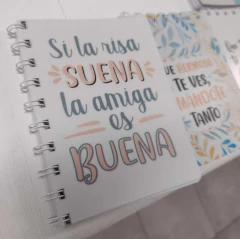 Si la risa
SUENA
la amiga
es
BUENA
TE VES,
TANTO